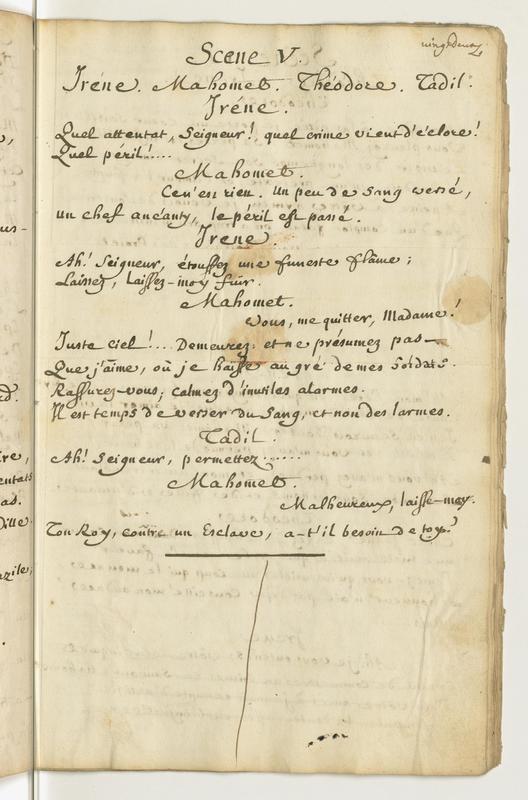 vingtdeux
Scene V.
Iréne. Mahomet. Théodore. Tadil.
Iréne.
Quel attentat, Seigneur! quel crime vient d'éclore!
Quel péril!....
Mahomet.
Ce n'est rien. Un peu de Sang versé,
un chef anéanty, le péril est passé.
Irene.
Ah! Seigneur, étouffez une funeste flâme;
Laissez, laissez-moy fuir.
Mahomet.
Vous, me quitter, Madame!
Juste ciel!... Demeurez; et ne présumez pas
Que j'aime, où je haïsse au gré de mes Soldats.
Rassurez-vous; calmez d'inutiles alarmes.
Il est temps de verser du Sang, et non des larmes.
Tadil.
Ah! Seigneur, permettez......
Mahomet.
Malheureux, laisse-moy.
Ton Roy, contre un Esclave, a-t'il besoin de toy?
us-
ire,
entats
as.
azile;